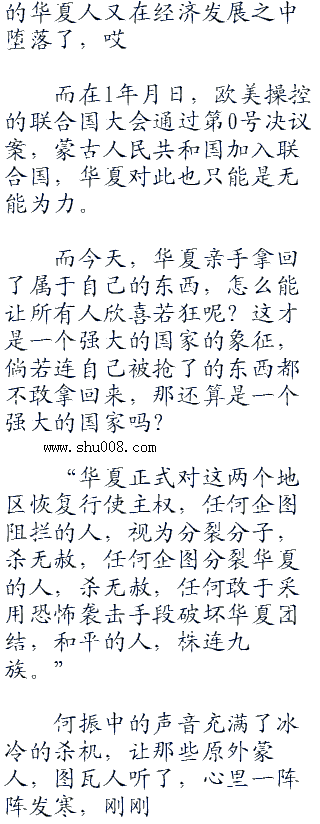 的华夏人又在经济发展之中
堕落了，哎
而在1年月日，欧美操控
的联合国大会通过第0号决议
案，蒙古人民共和国加入联
合国，华夏对此也只能是无
能为力。
而今天，华夏亲手拿回
了属于自己的东西，怎么能
让所有人欣喜若狂呢？这才
是一个强大的国家的象征，
倘若连自己被抢了的东西都
不敢拿回来，那还算是一个
强大的国家吗？
www.shu008.com
“华夏正式对这两个地
区恢复行使主权，任何企图
阻拦的人，视为分裂分子，
杀无赦，任何企图分裂华夏
的人，杀无赦，任何敢于采
用恐怖袭击手段破坏华夏团
结，和平的人，株连九
族。”
何振中的声音充满了冰
冷的杀机，让那些原外蒙
人，图瓦人听了，心里一阵
阵发寒，刚刚